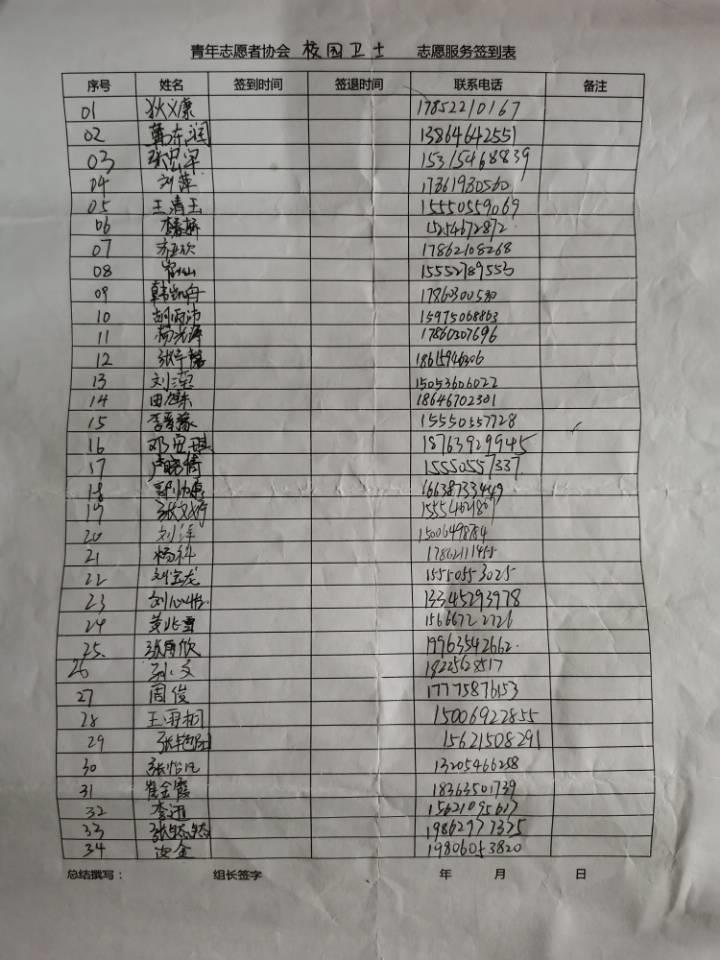 青年志愿者协会 校园卫士 志愿服务签到表
序号 姓名 签到时间 签退时间 联系电话 备注
01 狄义康 17852210167
02 韩东润 13864642551
03 张宏军 15315468839
04 刘萍 17361930560
05 王清玉 15550559069
06 15254672872
07 齐亚欣 17862108268
08 15552789553
09 韩凯舟 17860300530
10 胡雨沛 15975068863
11 杨光泽 17860307696
12 18615946306
13 刘滢 15053606022
14 18646702301
15 李家豪 15550557728
16 邓宜琪 18763929945
17 卢晓倩 15550557337
18 16638733449
19 张文婷
20 刘洋 15006498784
21 杨科 17862111455
22 刘宝龙 15550553025
23 刘心怡 13345293978
24 黄兆雪 15666722726
25 张雨欣 19963542662
26 孙文 1822568517
27 周俊 17775876153
28 王雨桐 15006922855
29 张艳阳 15621508291
30 张怡凡 13205466258
31 崔金霞 18363501739
32 李迅 15621095617
33 张皓皓 19862977375
34 19806053820
总结撰写： 组长签字 年 月 日